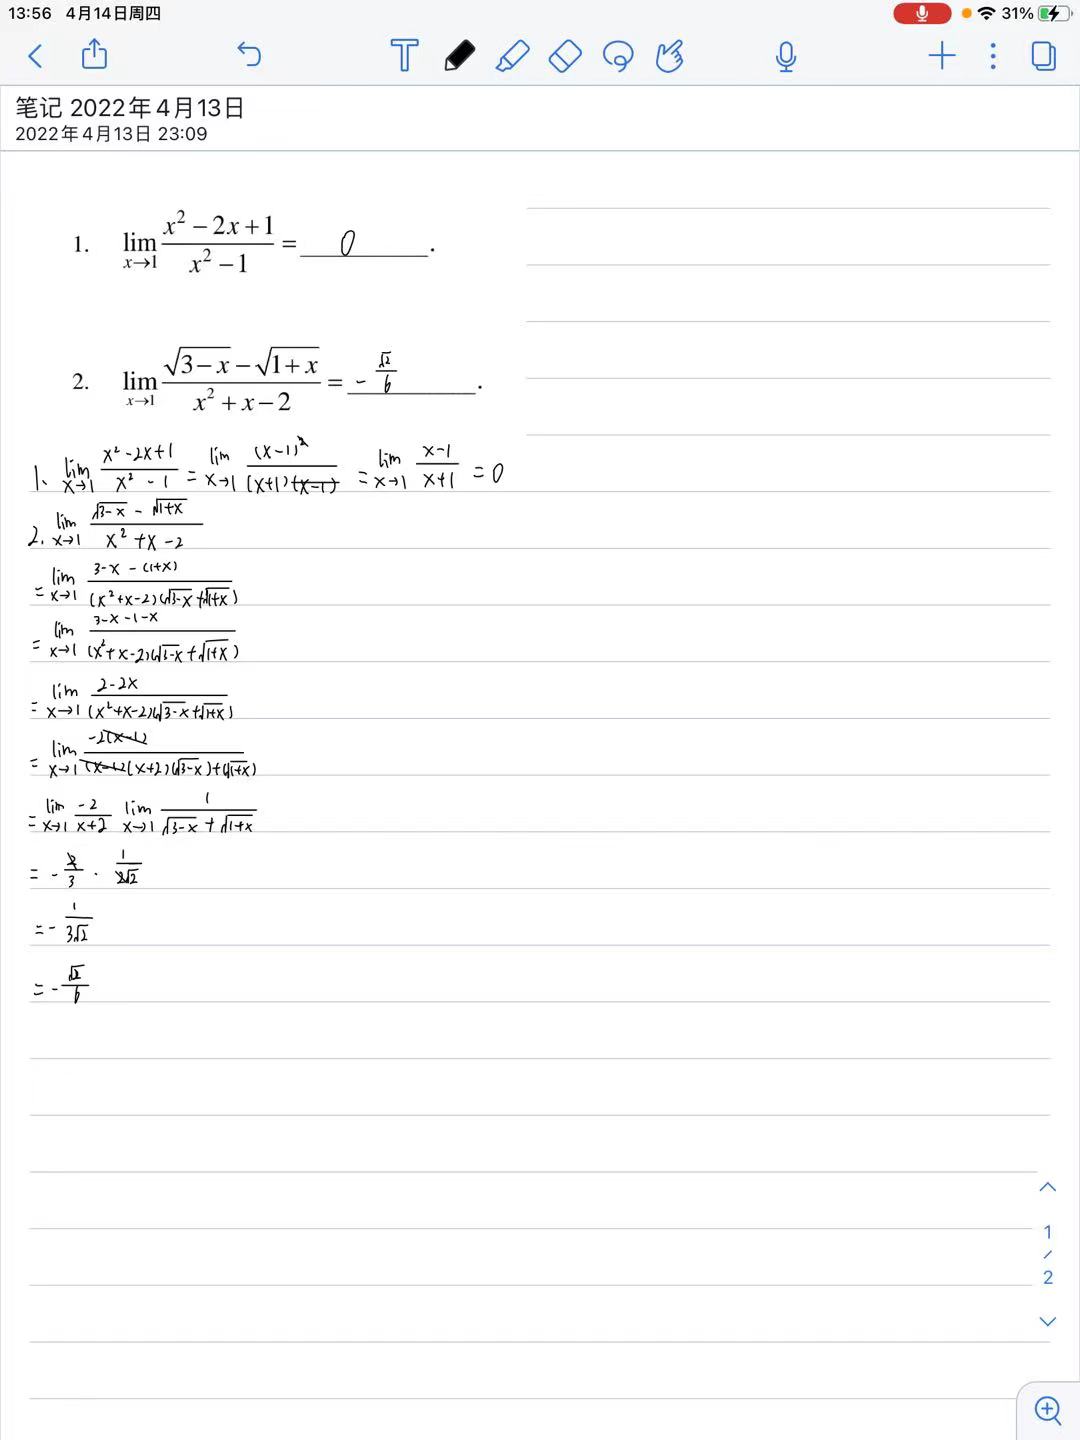 13:56 4月14日周四 31%
笔记 2022年4月13日
2022年4月13日 23:09
1. lim x→1 (x² − 2x + 1)/(x² − 1) = 0 .
2. lim x→1 (√(3−x) − √(1+x))/(x² + x − 2) = −√2/6 .
1、lim x→1 (x² − 2x + 1)/(x² − 1) = lim x→1 (x−1)²/((x+1)(x−1)) = lim x→1 (x−1)/(x+1) = 0
2. lim x→1 (√(3−x) − √(1+x))/(x² + x − 2)
= lim x→1 (3−x − (1+x))/((x²+x−2)(√(3−x) + √(1+x)))
= lim x→1 (3−x−1−x)/((x²+x−2)(√(3−x) + √(1+x)))
= lim x→1 (2−2x)/((x²+x−2)(√(3−x) + √(1+x)))
= lim x→1 −2(x−1)/((x−1)(x+2)(√(3−x)) + (√(1+x))
= lim x→1 −2/(x+2) lim x→1 1/(√(3−x) + √(1+x))
= −2/3 · 1/(2√2)
= −1/(3√2)
= −√2/6
1
/
2